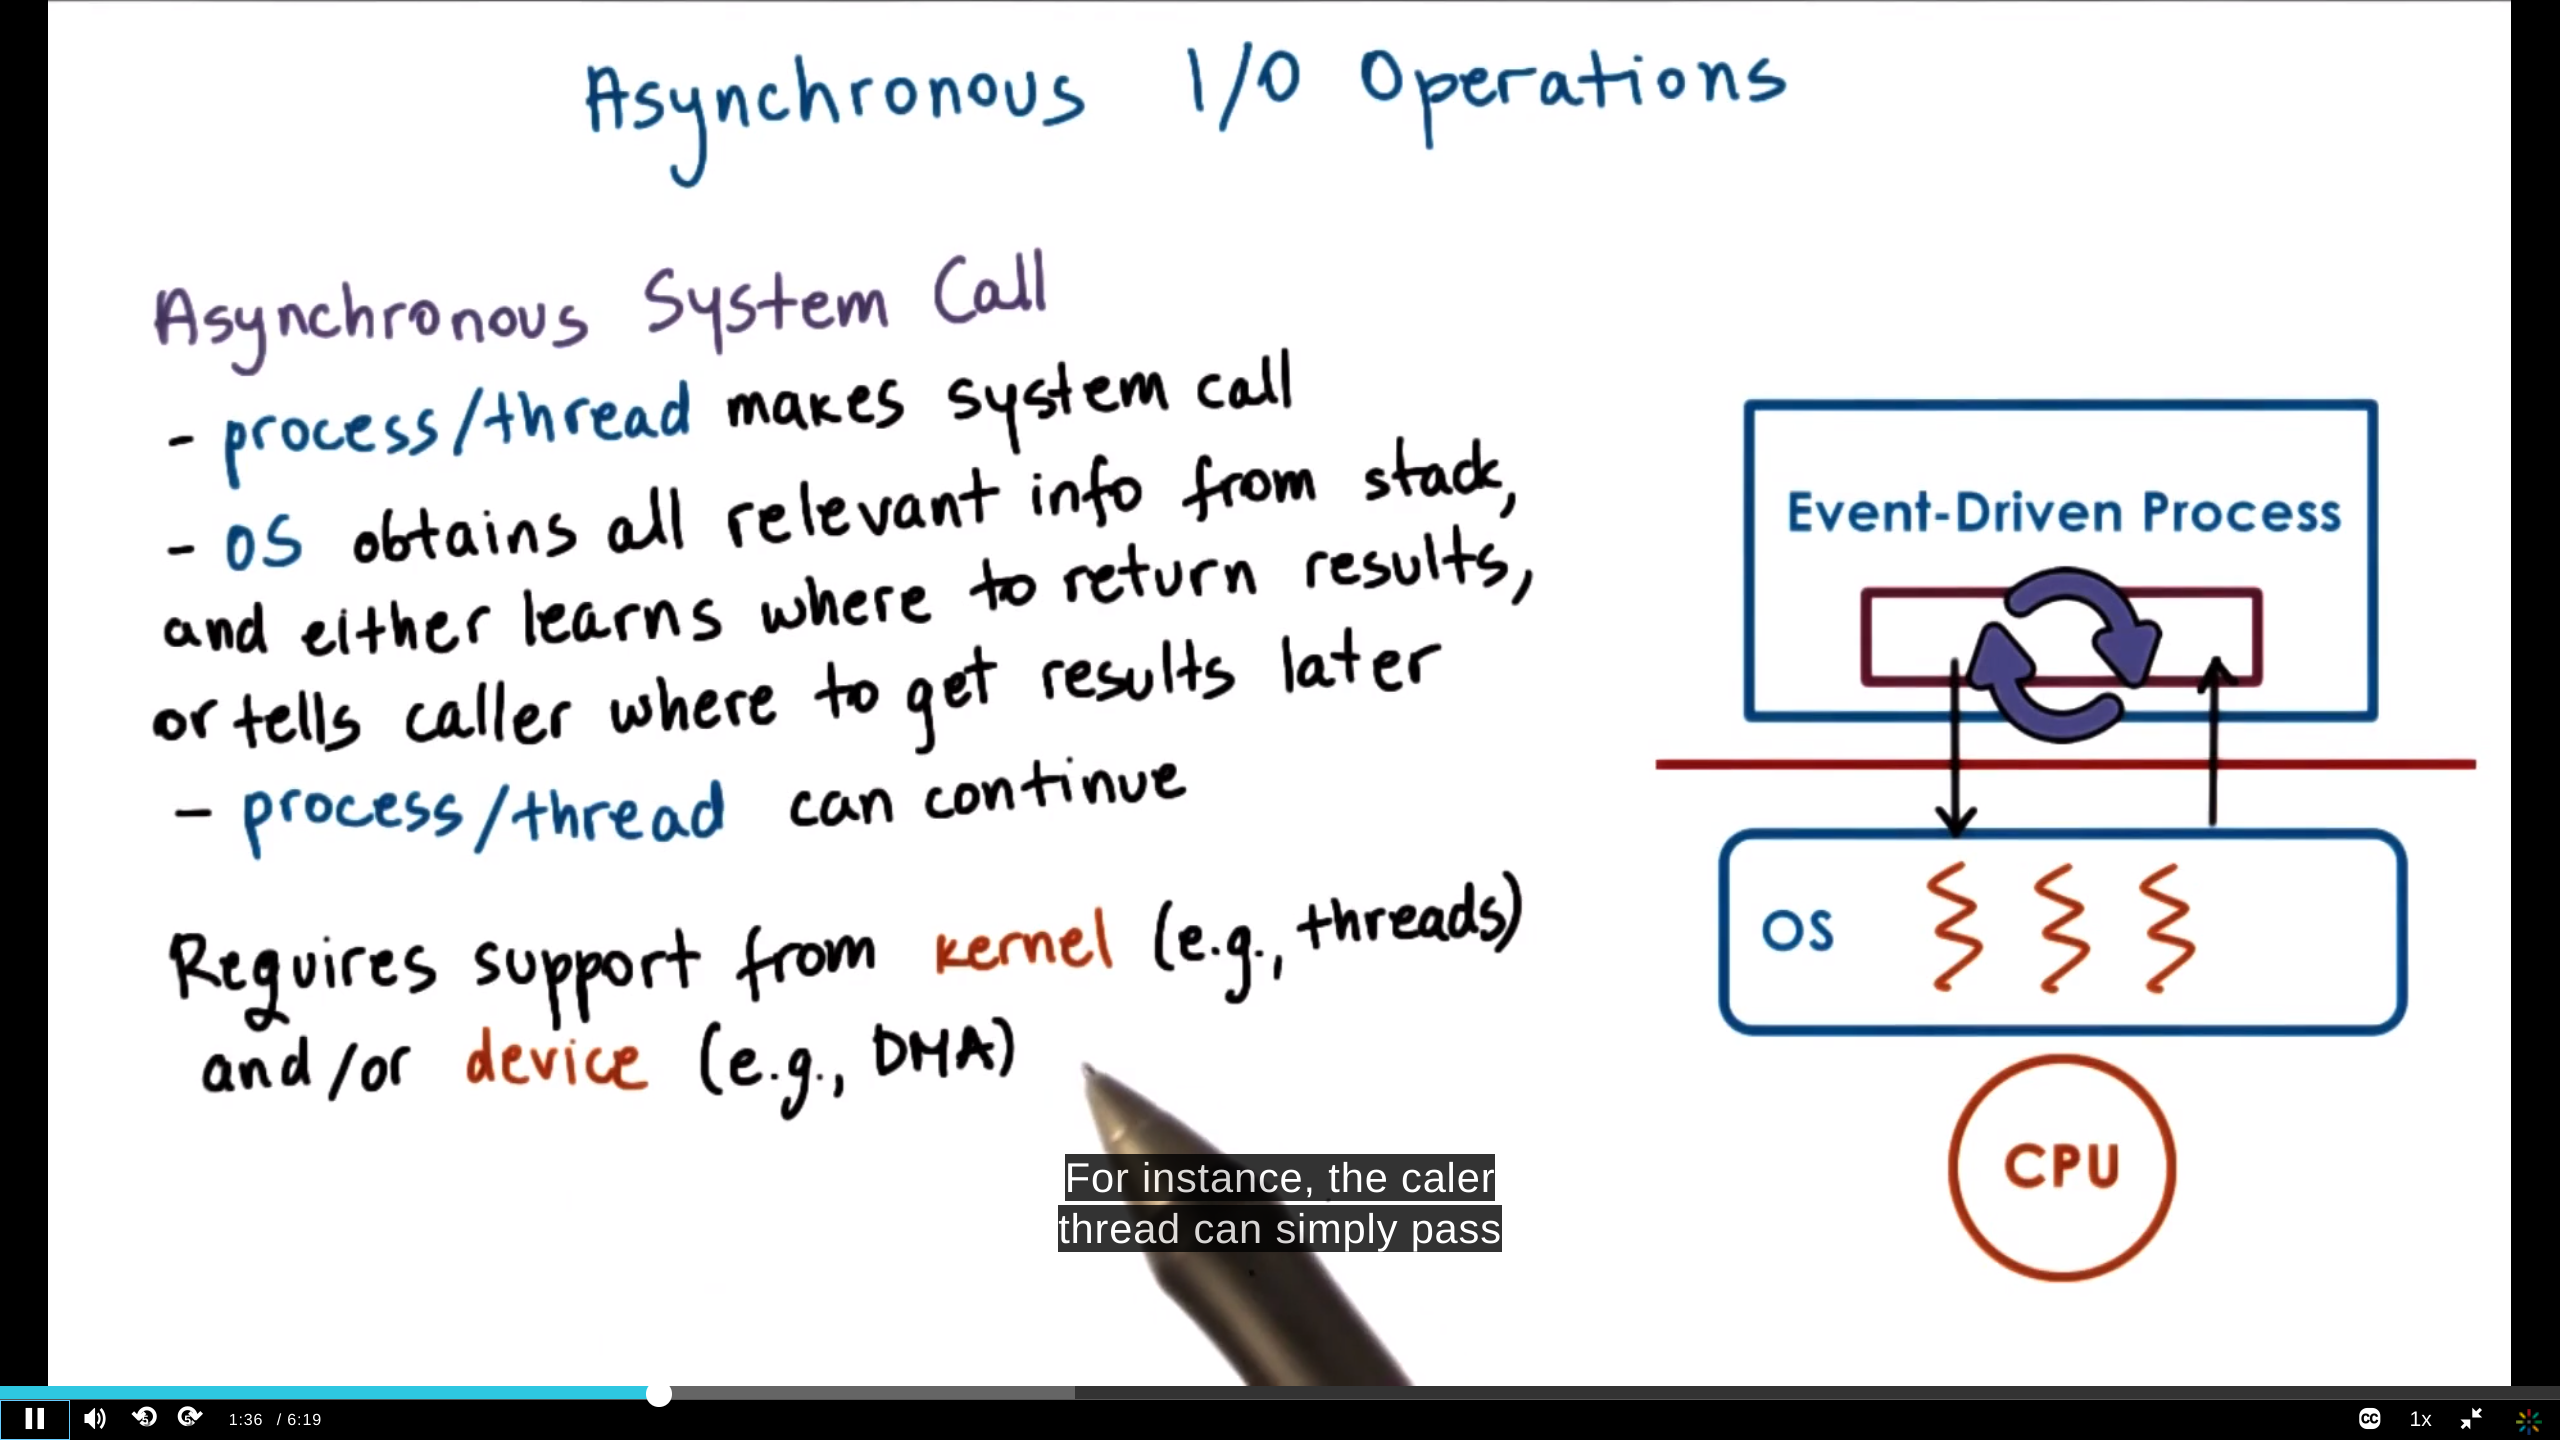 Asynchronous I/O Operations
Asynchronous System Call
- process/thread makes system call
- OS obtains all relevant info from stack,
and either learns where to return results,
or tells caller where to get results later
- process/thread can continue
Requires support from kernel (e.g., threads)
and/or device (e.g., DMA)
Event-Driven Process
OS
CPU
For instance, the caler
thread can simply pass
1:36 / 6:19
CC
1x